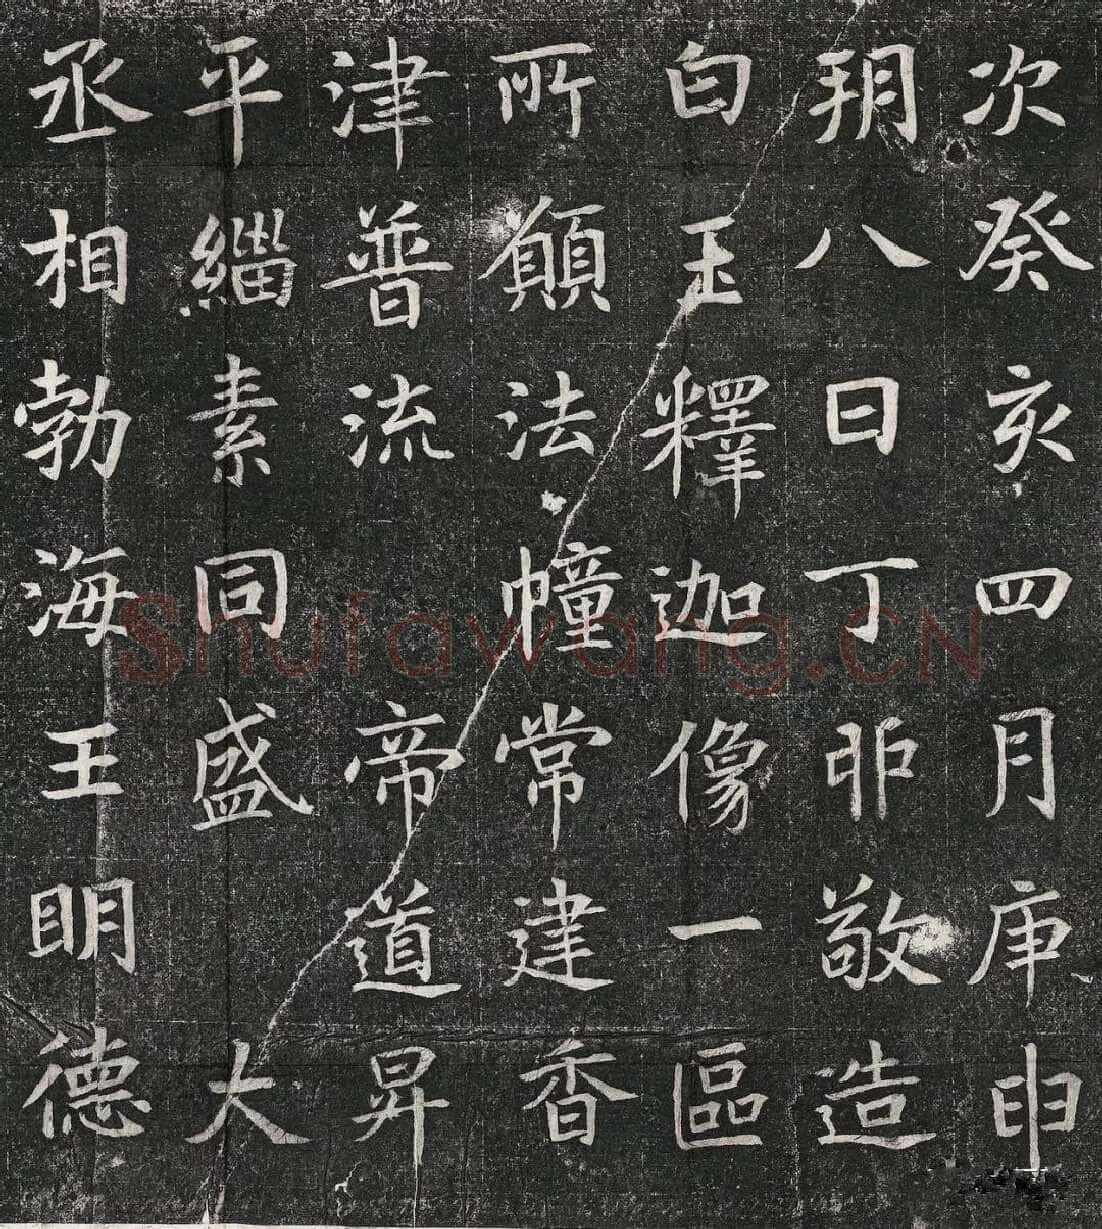 次癸亥四月庚申
朔八日丁卯敬造
白玉釋迦像一區
所願法幢常建香
津普流 帝道昇
平緇素同盛大
丞相勃海王明德
Shufawang.CN